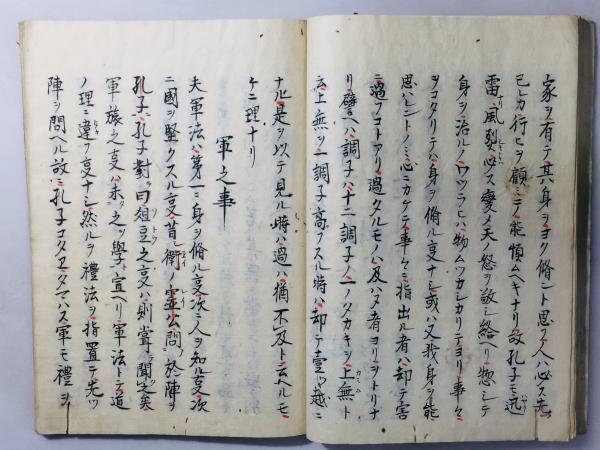 家ヲ有テ其身ヲヨク脩ント思フ人ハ必ス先ツ
己カ行ヒヲ顧ミテ能慎ムヘキナリ故孔子モ迅
雷風烈必ス変メ天ノ怒ヲ敬シ給ヘリ惣シテ
身ヲ治ルノウツラヒハ物ムツカシカリテヨリ事々
ヲコタリテハ身ヲ脩ル亨ナシ或ハ又我身ヲ能
思ハレントノミ心ニカケテ事々ニ指出ル者ハ却テ害
ニ過フコトアリ過タルモノハ及ハヌ者ヨリヲトリナ
リ譬ハ調子ハ十二調子ノ一ノタカキヲ上無ト
云上無ヲ一調子高フスル時ハ却テ壹越ニ
ナル是ヲ以テ見ル時ハ過ハ猶不及ト云ヘルモ
ケニ理ナリ
軍之事
夫軍法ハ第一ニ身ヲ脩ル亨次ニ人ヲ知ル亨次
ニ國ヲ堅クスル亨昔シ衛ノ霊公問フ於陣ヲ
孔子ニ孔子對曰俎豆之亨ハ則嘗テ聞之矣
軍旅之亨ハ未タ之ヲ學ハト宣ヘリ軍法トテ道
ノ理ニ違フ亨ナシ然ルヲ禮法ヲ指置テ先ツ
陣ヲ問ヘル故ニ孔子コタヱタマハス軍モ禮ヲ